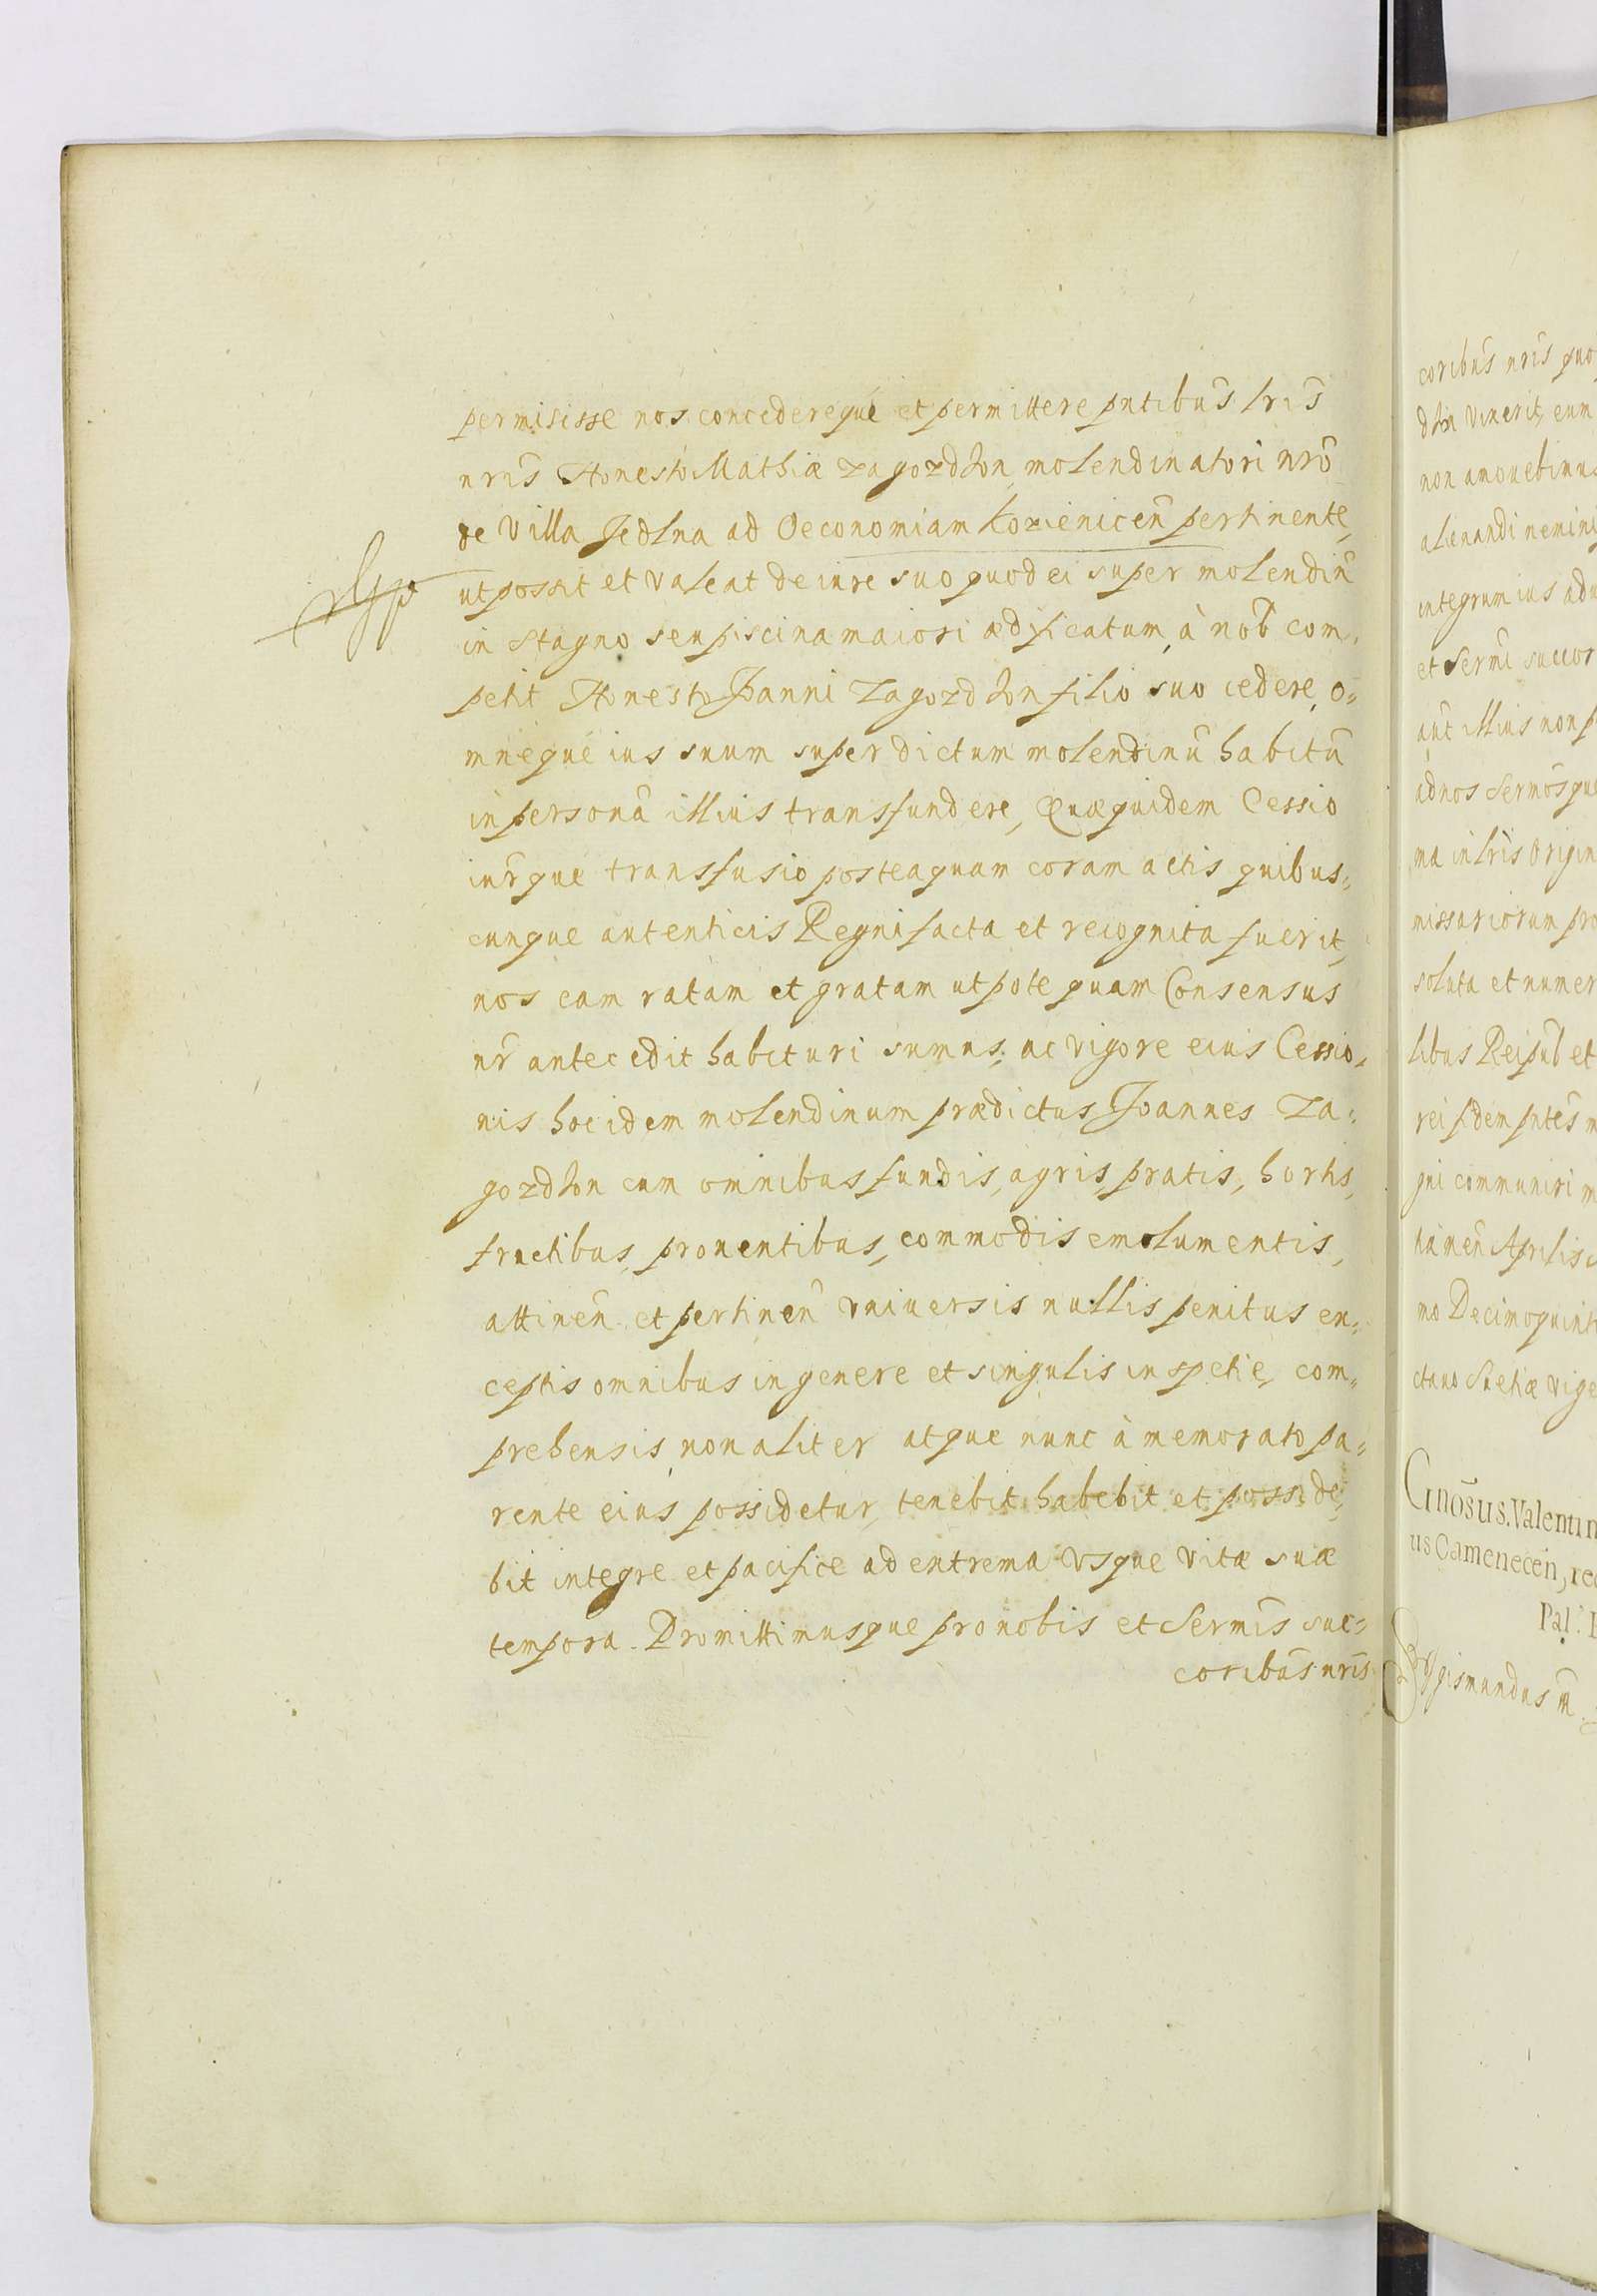 permisisse nos concederequé et permittere pntibus̃ lris̃
nris̃ Honesto Mathiæ Zagozdzon, molendinatori nrõ
de Villa Jedlna ad Oeconomiam Kozienicen̄ pertinente,
ut possit et valeat de iure suo quod ei super molendin̄
in stagno seu piscina maiori ædificatum, à nob̃ com,
petit Honesto Joanni Zagozdzon filio suo cedere, o=
mnequé ius suum super dictum molendinū habitū
in personā illius transfundere, Quæquidem Cessio
iur̃que transfusio posteaquam coram actis quibus=
cunque autenticis Regni facta et recognita fuerit,
nos eam ratam et gratam utpote quam Consensus
nr̃ antecedit habituri sumus; ac vigore eius Cessio,
nis hoc idem molendinum prædictus Joannes Za=
gozdzon cum omnibus fundis, agris, pratis, hortis,
fructibus, prouentibus, commodis emolumentis,
attinen̄ et pertinen̄ vniuersis nullis penitus ex=
ceptis omnibus in genere et singulis in spetie, com=
prehensis, non aliter atque nunc à memorato pa=
rente eius possidetur, tenebit habebit et posside,
bit integre et pacifice ad extrema vsque vitæ suæ
tempora. Promittimusque pro nobis et Sermis̃ suc=
coribus̃ nris̃
coribus̃ nris̃ quo
dzon vixerit, eum
non amouebimus
alienandi nemini
integrum ius adu
et Serm̃i succor
aut̃ illius non p
ad nos Sermosque
ma in lris̃ Origin
missariorum pro
soluta et numer
libus Reipub̃ et
rei fidem pntes̃ m
gni communiri m
Aprilis
mo Decimoquint
ctauo Suetiæ vige
Gnõsus. Valentin
us Camenecen̄, rec
Pal:
Sigismundus